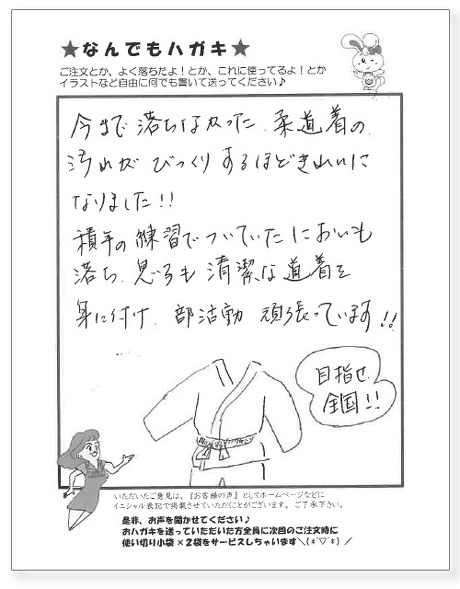 ★なんでもハガキ★
ご注文とか、よく落ちたよ！とか、これに使ってるよ！とか
イラストなど自由に何でも書いて送ってください♪
今まで落ちなかった、柔道着の
汚れが びっくりするほどきれいに
なりました!!
積年の練習でついていたにおいも
落ち、息子も清潔な道着を
身に付け、部活動 頑張っています!!
目指せ
全国!!
いただいたご意見は、『お客様の声』としてホームページなどに
イニシャル表記で掲載させていただくことがございます。ご了承下さい。
是非、お声を聞かせてください♪
おハガキを送っていただいた方全員に次回のご注文時に
使い切り小袋×2袋をサービスしちゃいます＼(*ˊ▽ˋ*)／